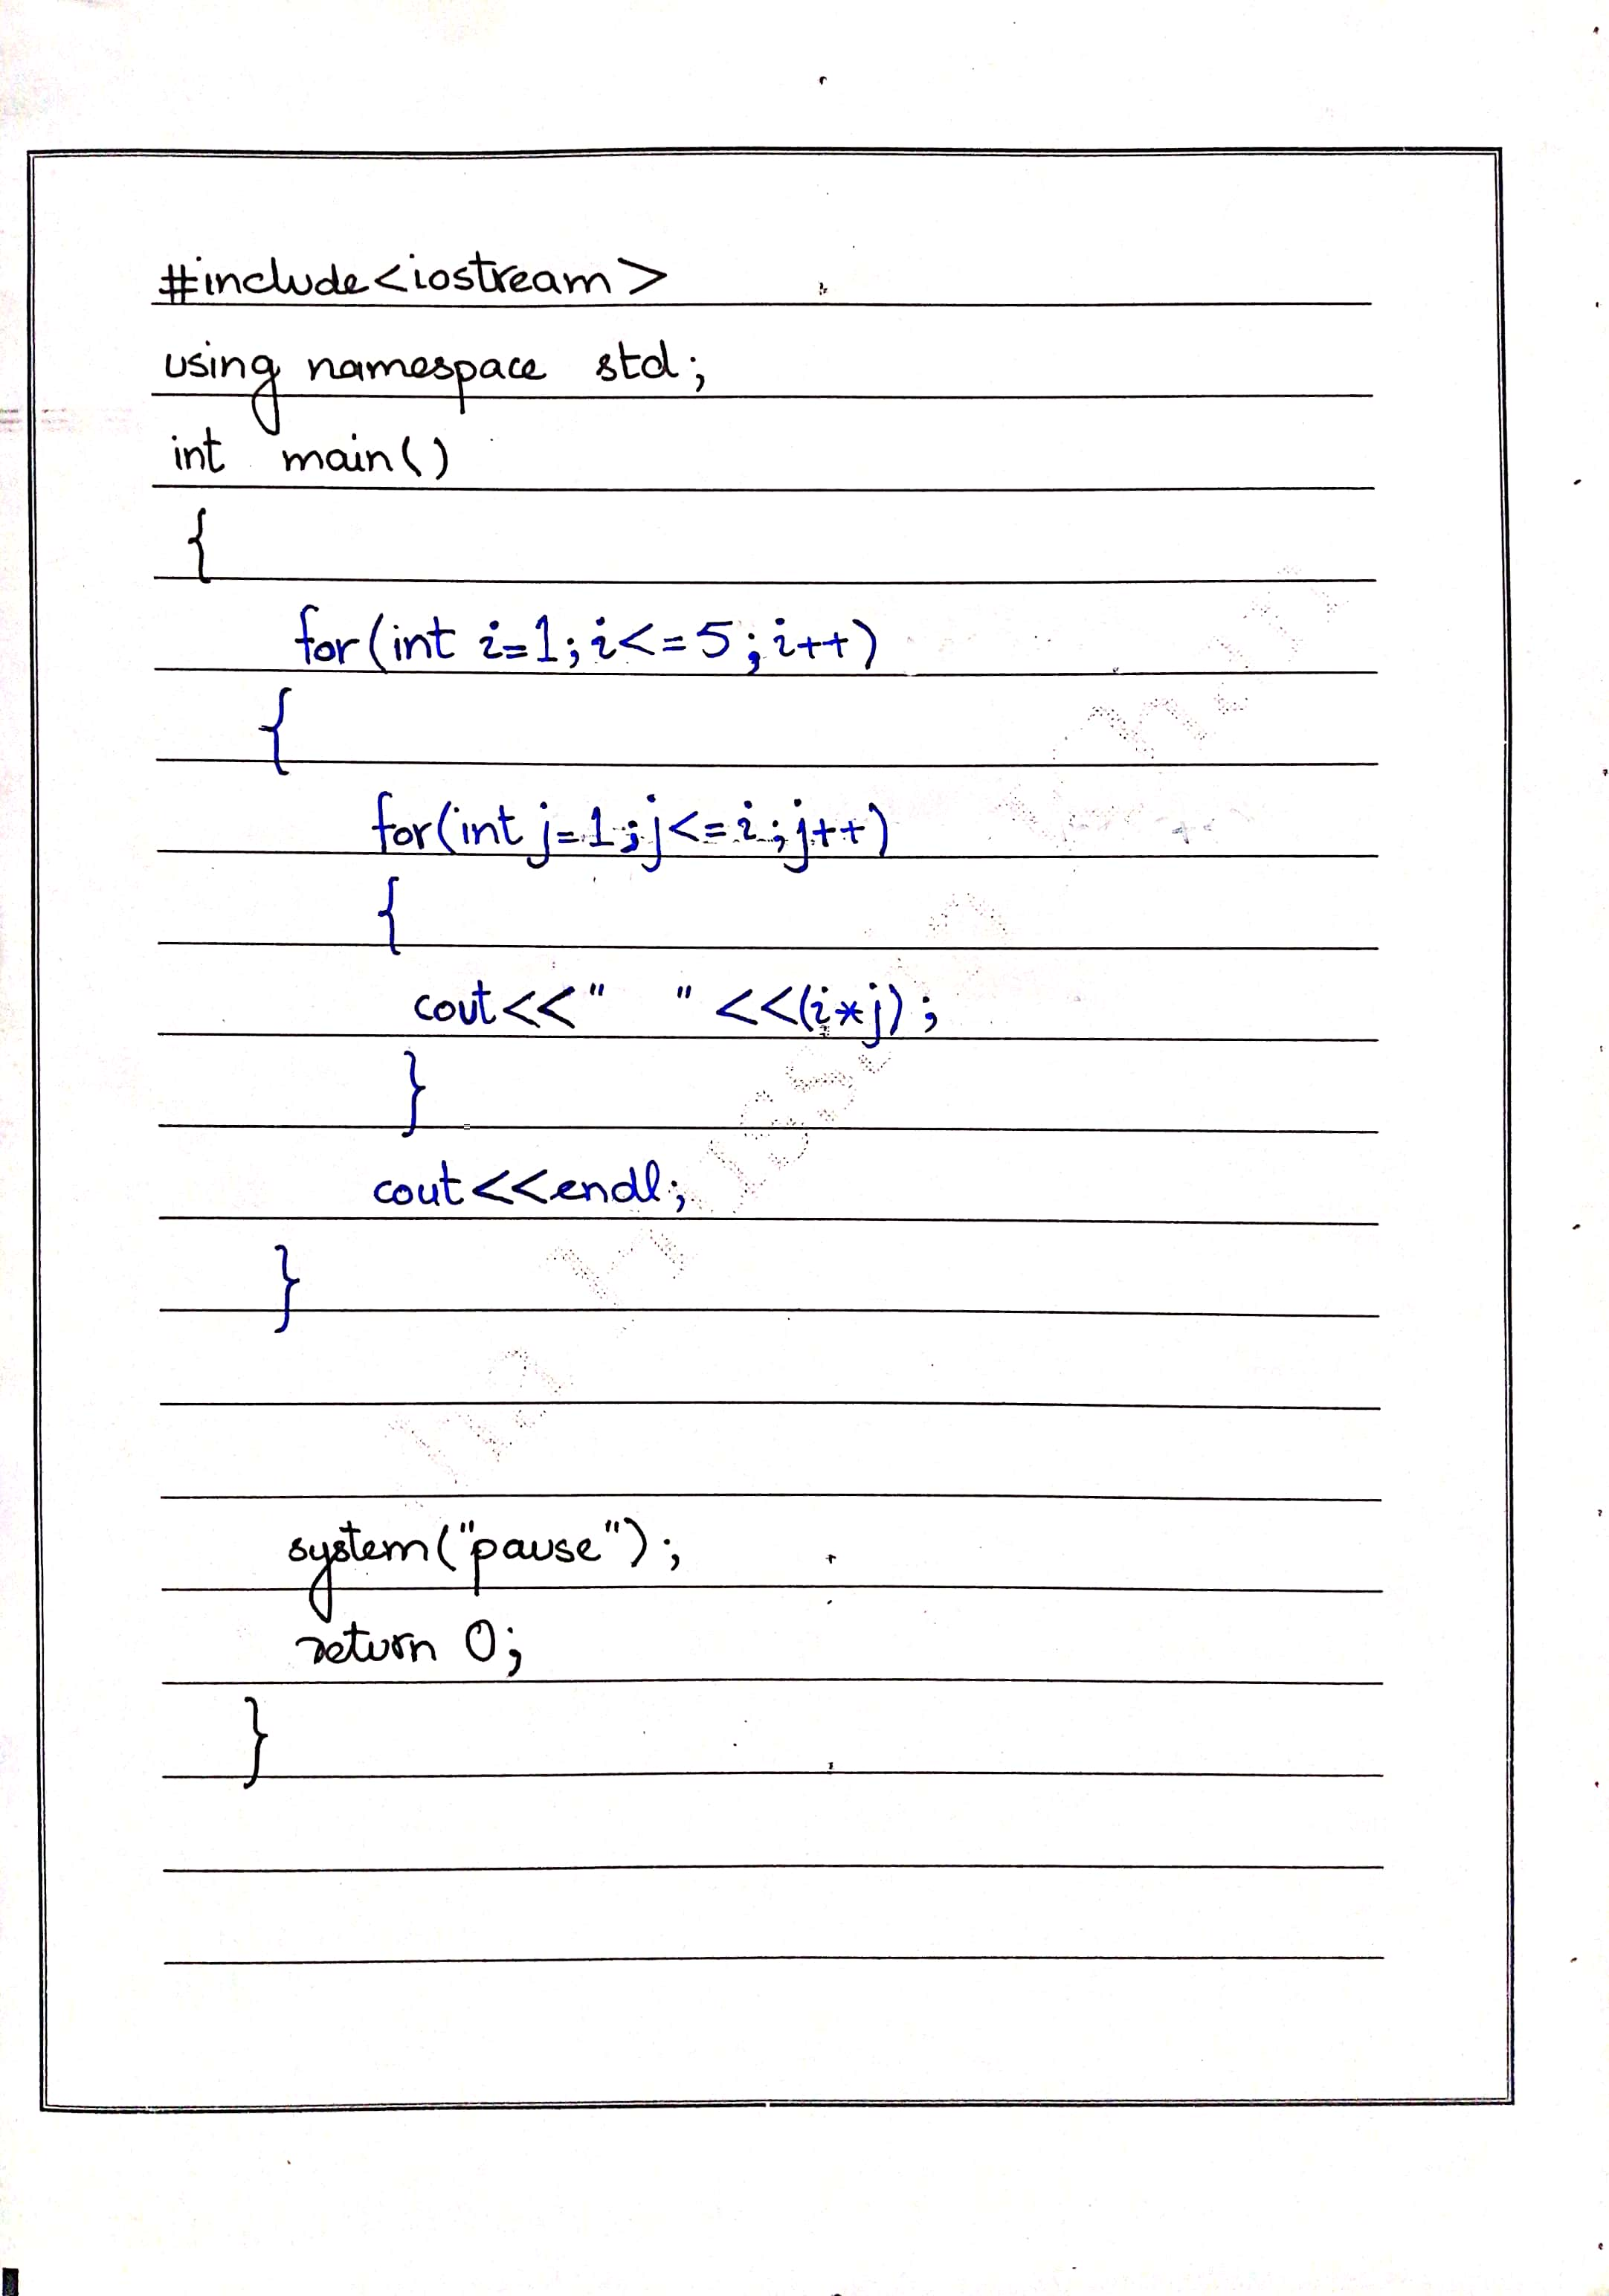 #include<iostream>
using namespace std;
int main()
{
for(int i=1;i<=5;i++)
{
for(int j=1;j<=i;j++)
{
cout<<"   "<<(i*j);
}
cout<<endl;
}
system("pause");
return 0;
}